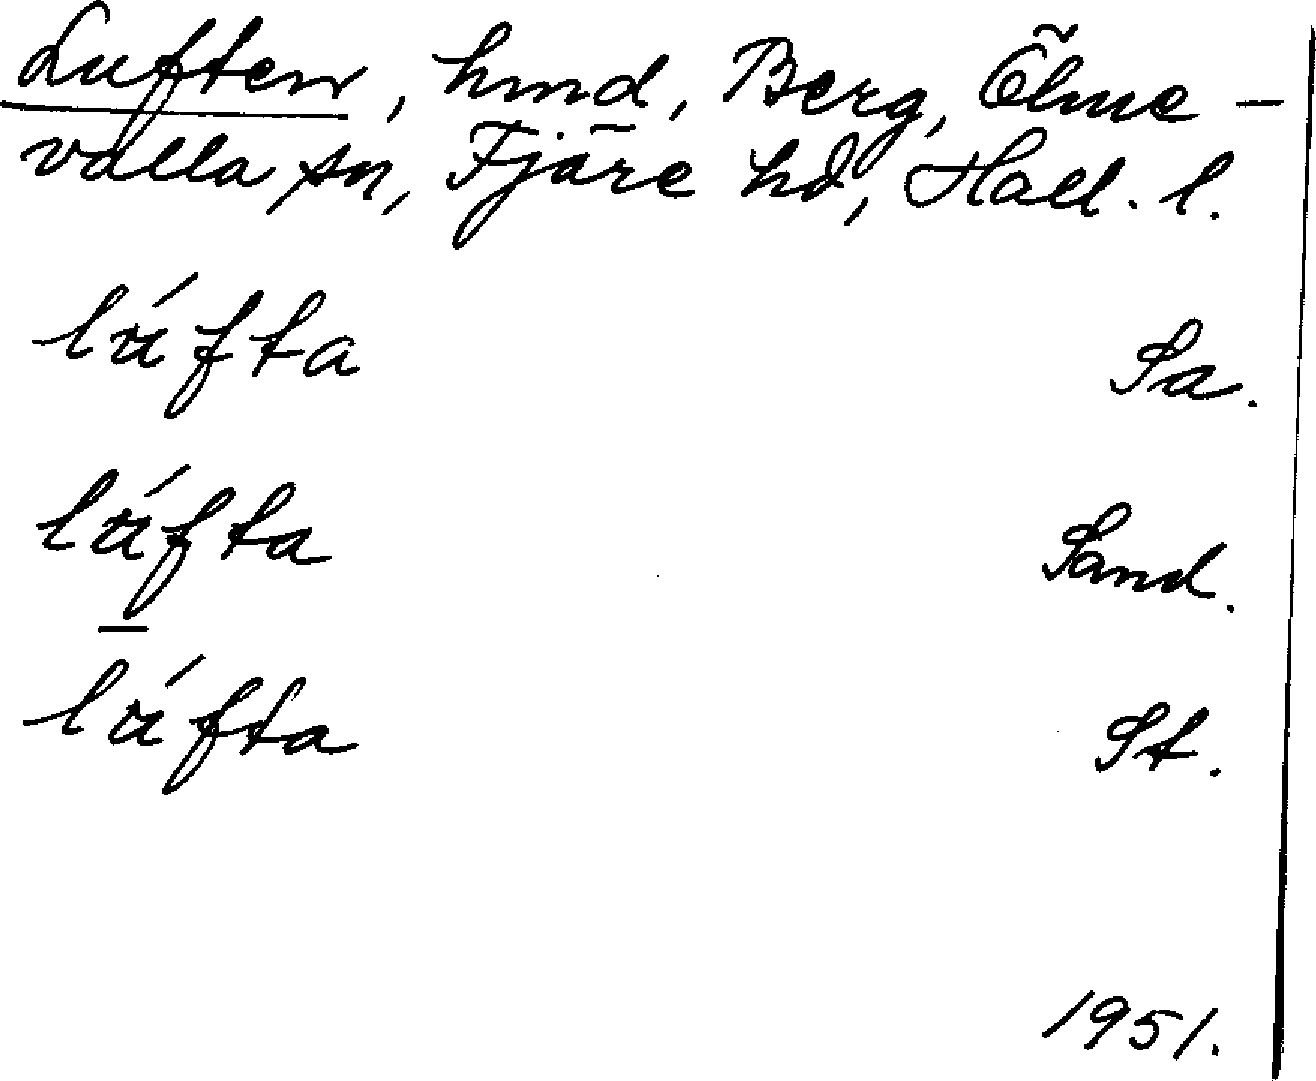 Luften, hmd, Berg, Ölme-
valla sn, Fjäre hd, Hall. l.
lúfta Sa.
lúfta Sand.
lúfta St.
1951.